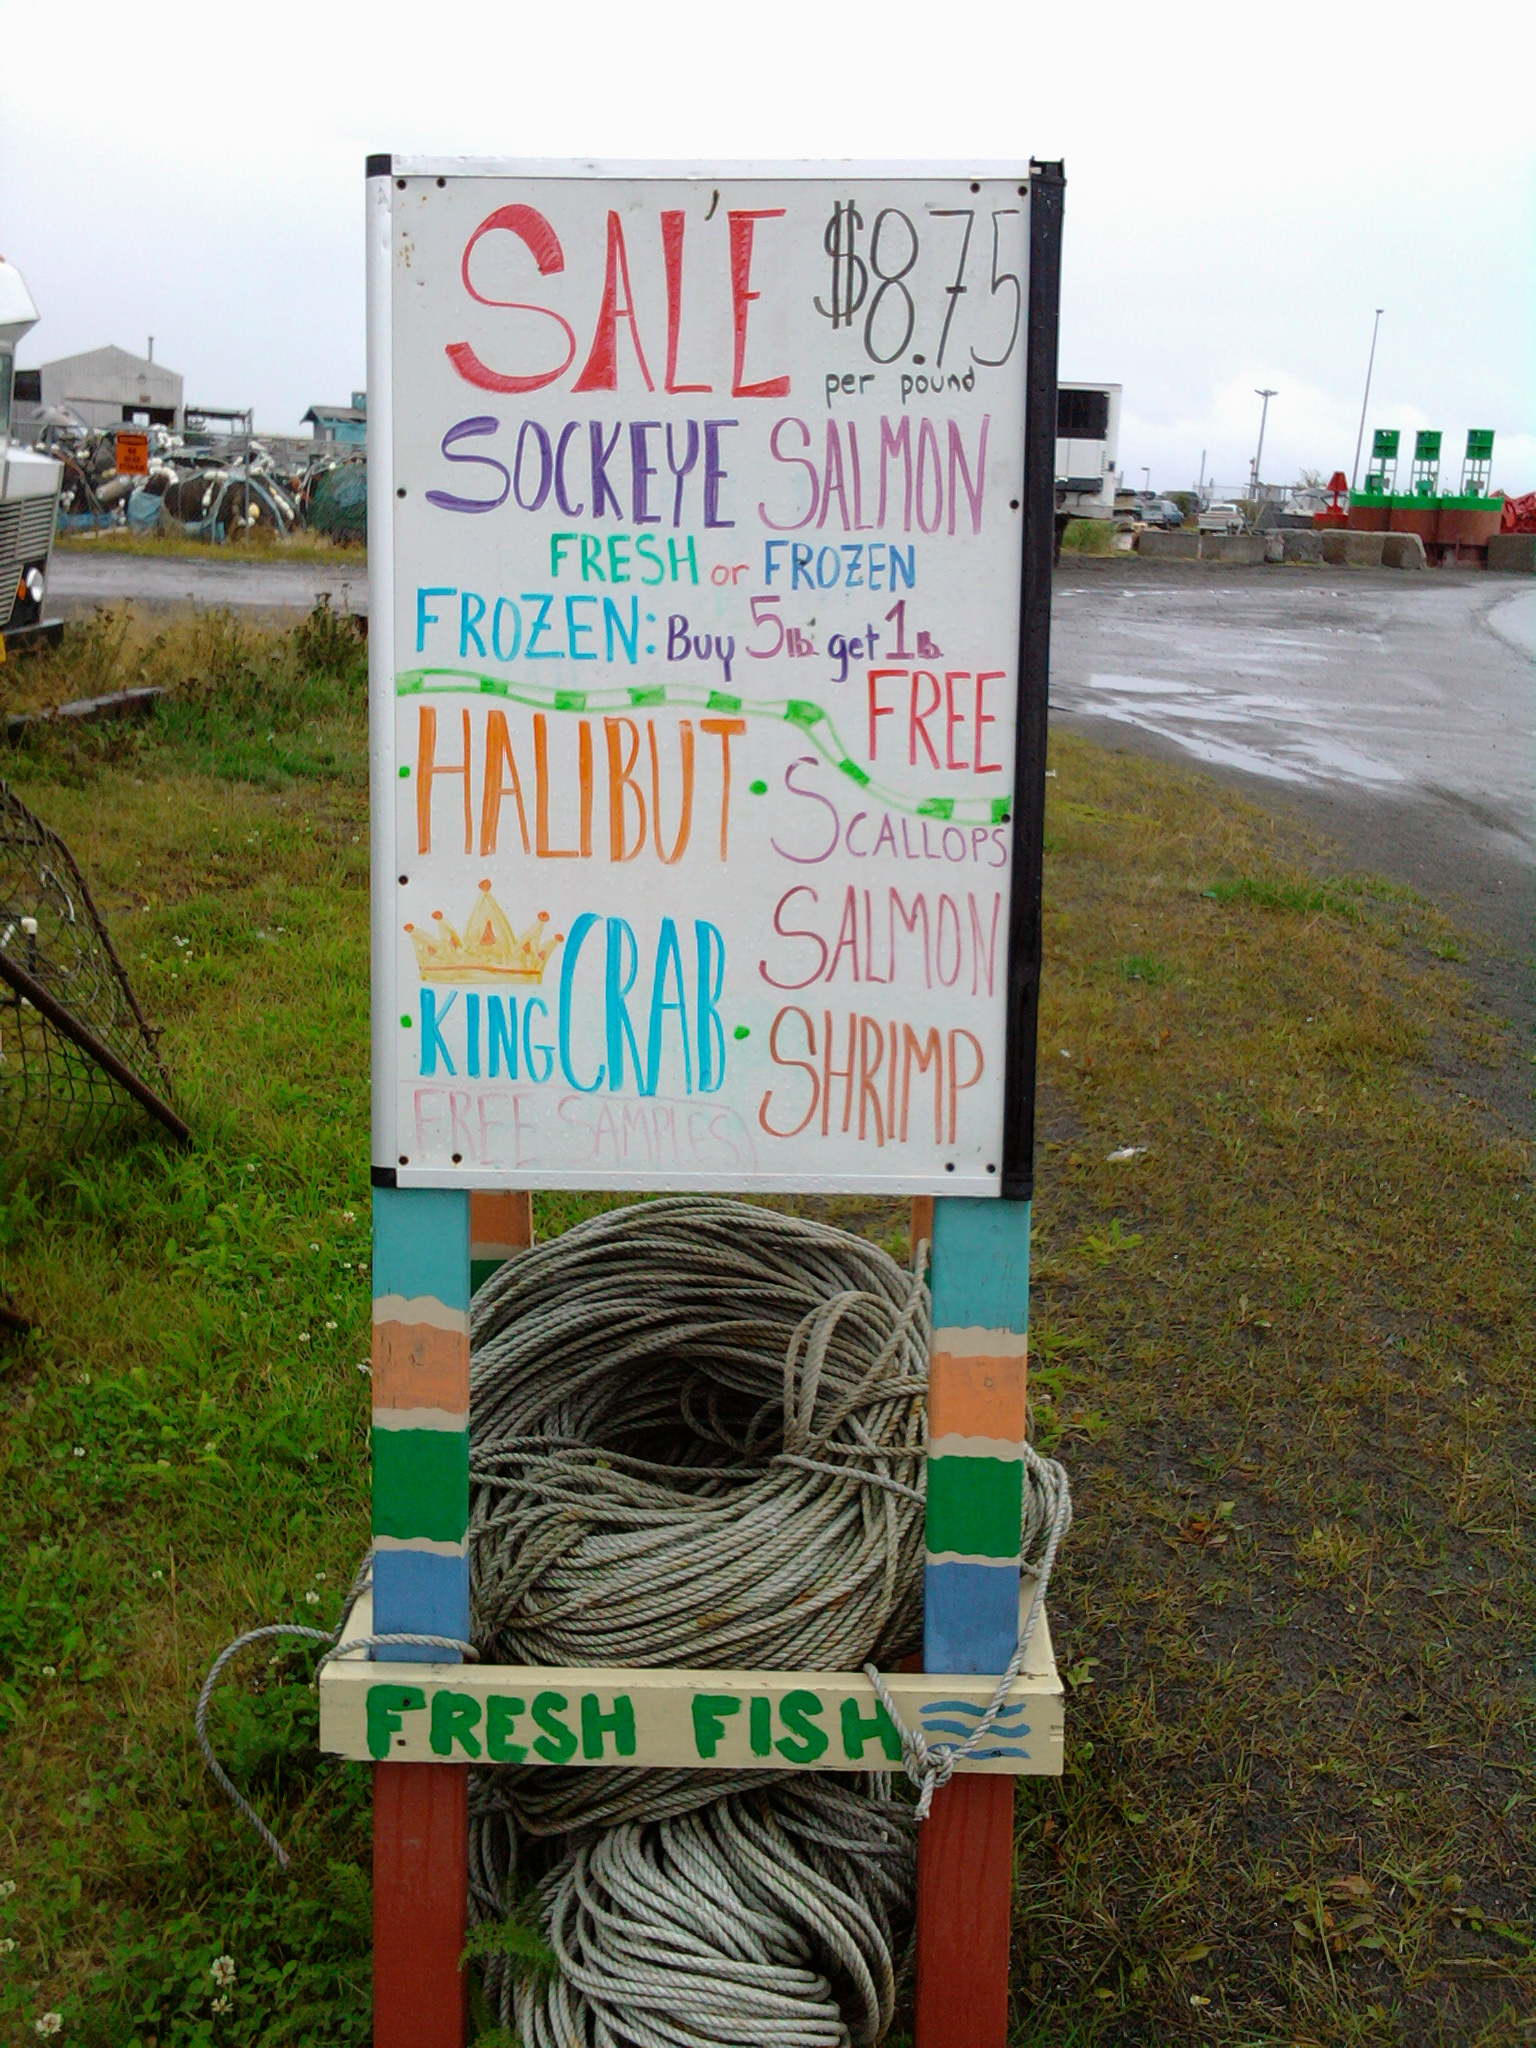 SALE $8.75
per pound
SOCKEYE SALMON
FRESH or FROZEN
FROZEN: Buy 5lb. get 1lb.
FREE
HALIBUT
SCALLOPS
SALMON
KING CRAB
SHRIMP
FREE SAMPLES
FRESH FISH